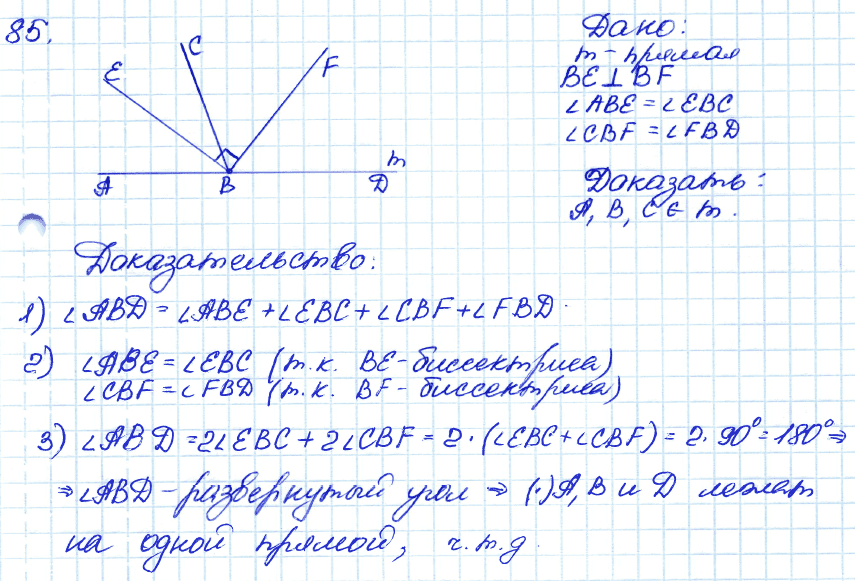 85.
E
C
F
A
B
D
m
Дано:
m - прямая
BE ⊥ BF
∠ABE = ∠EBC
∠CBF = ∠FBD
Доказать:
A, B, C ∈ m.
Доказательство:
1) ∠ABD = ∠ABE + ∠EBC + ∠CBF + ∠FBD.
2) ∠ABE = ∠EBC (т.к. BE - биссектриса)
∠CBF = ∠FBD (т.к. BF - биссектриса)
3) ∠ABD = 2∠EBC + 2∠CBF = 2·(∠EBC + ∠CBF) = 2·90° = 180° ⇒
⇒ ∠ABD - развернутый угол ⇒ (·)A, B и D лежат
на одной прямой, ч.т.д.